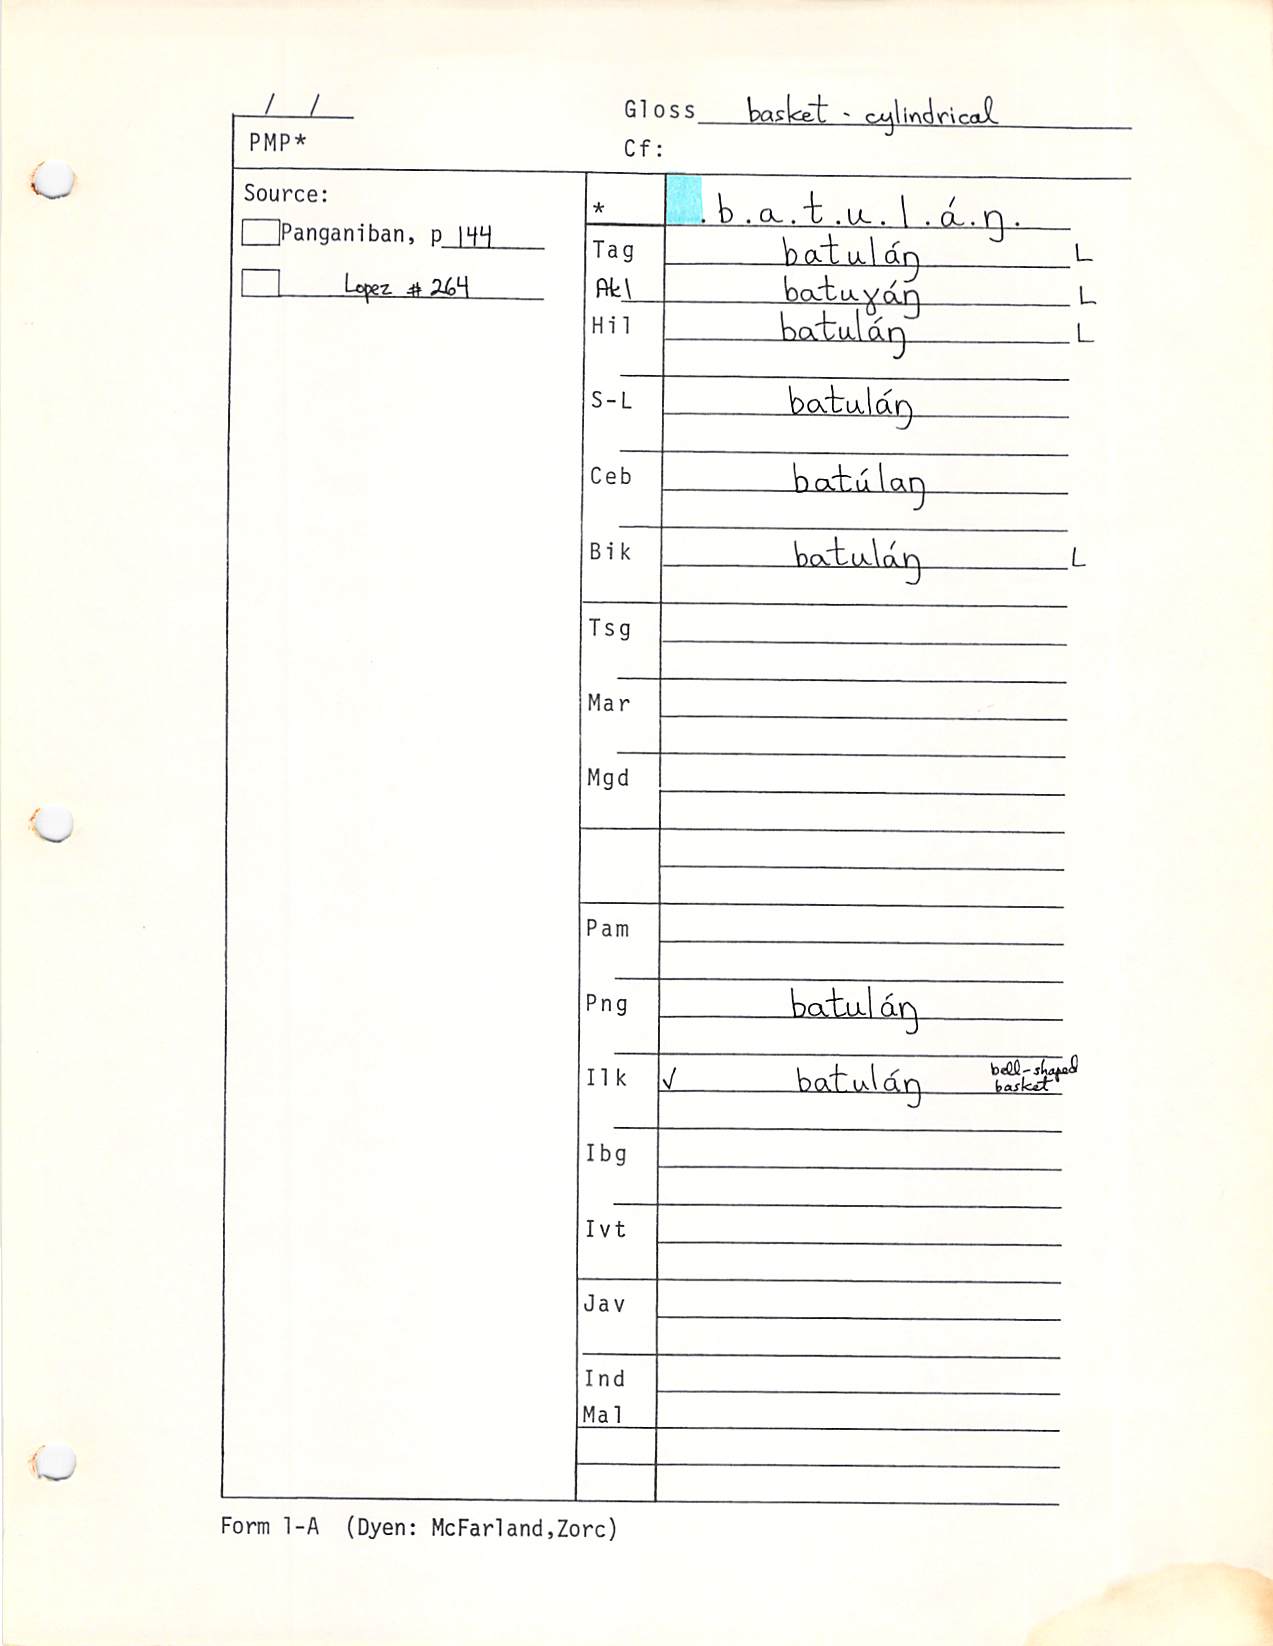 / /
Gloss basket - cylindrical
PMP*
Cf:
Source:
Panganiban, p 144
Lopez # 264
* .b.a.t.u.l.á.ŋ.
Tag batuláŋ L
Akl batuɣáŋ L
Hil batuláŋ L
S-L batuláŋ
Ceb batúlaŋ
Bik batuláŋ L
Tsg
Mar
Mgd
Pam
Png batuláŋ
Ilk ✓ batuláŋ bell-shaped
basket
Ibg
Ivt
Jav
Ind
Mal
Form 1-A (Dyen: McFarland,Zorc)